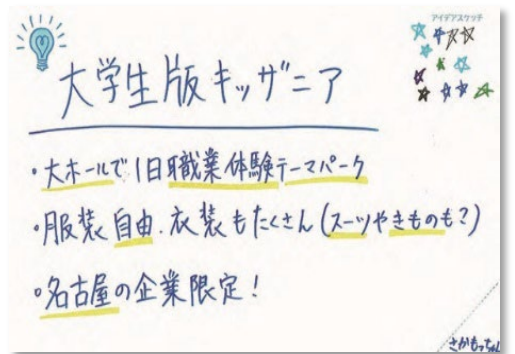 アイデアスケッチ
大学生版キッザニア
・大ホールで1日職業体験テーマパーク
・服装自由.衣装もたくさん(スーツやきものも?)
・名古屋の企業限定!
さかもっちゃん